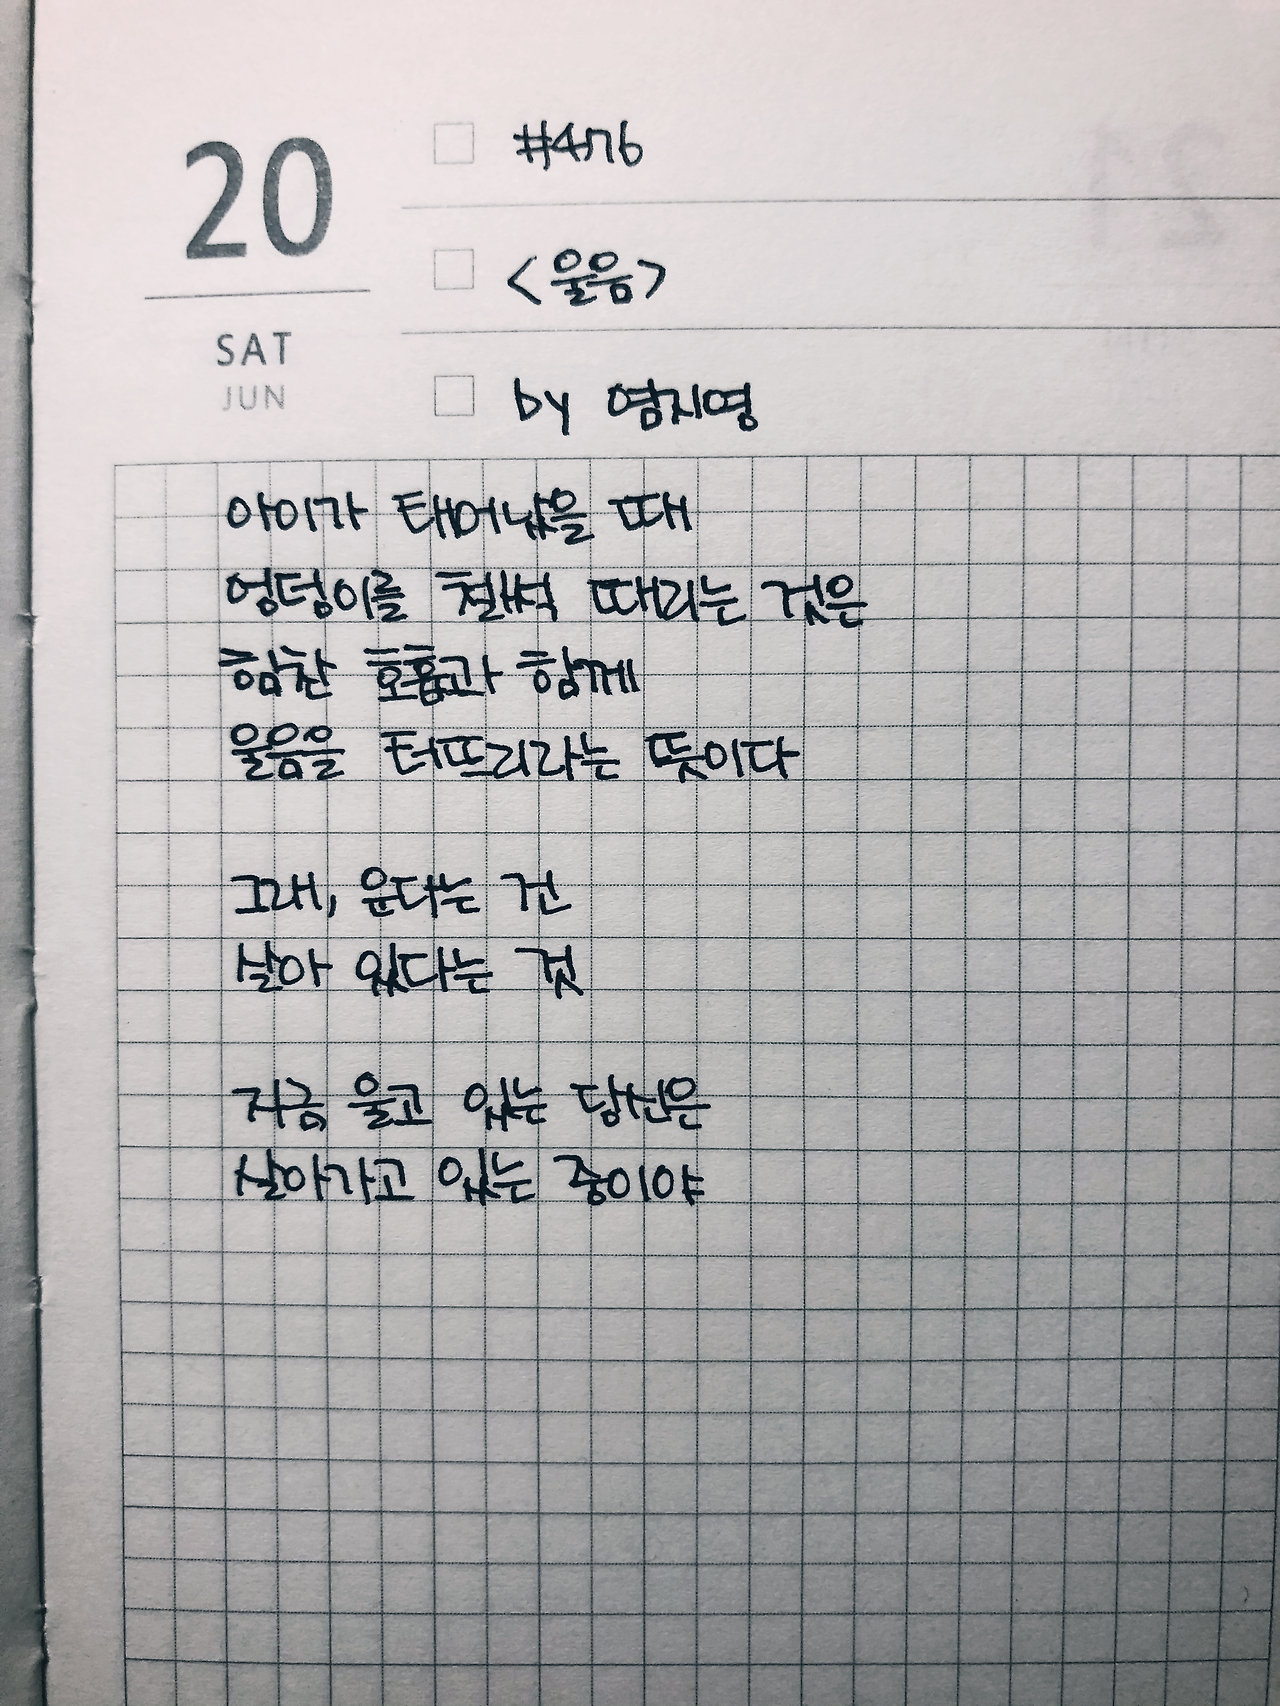 20
SAT
JUN
#476
<울음>
by 염지영
아이가 태어났을 때
엉덩이를 철썩 때리는 것은
힘찬 호흡과 함께
울음을 터뜨리라는 뜻이다
그래, 운다는 건
살아 있다는 것
지금 울고 있는 당신은
살아가고 있는 중이야